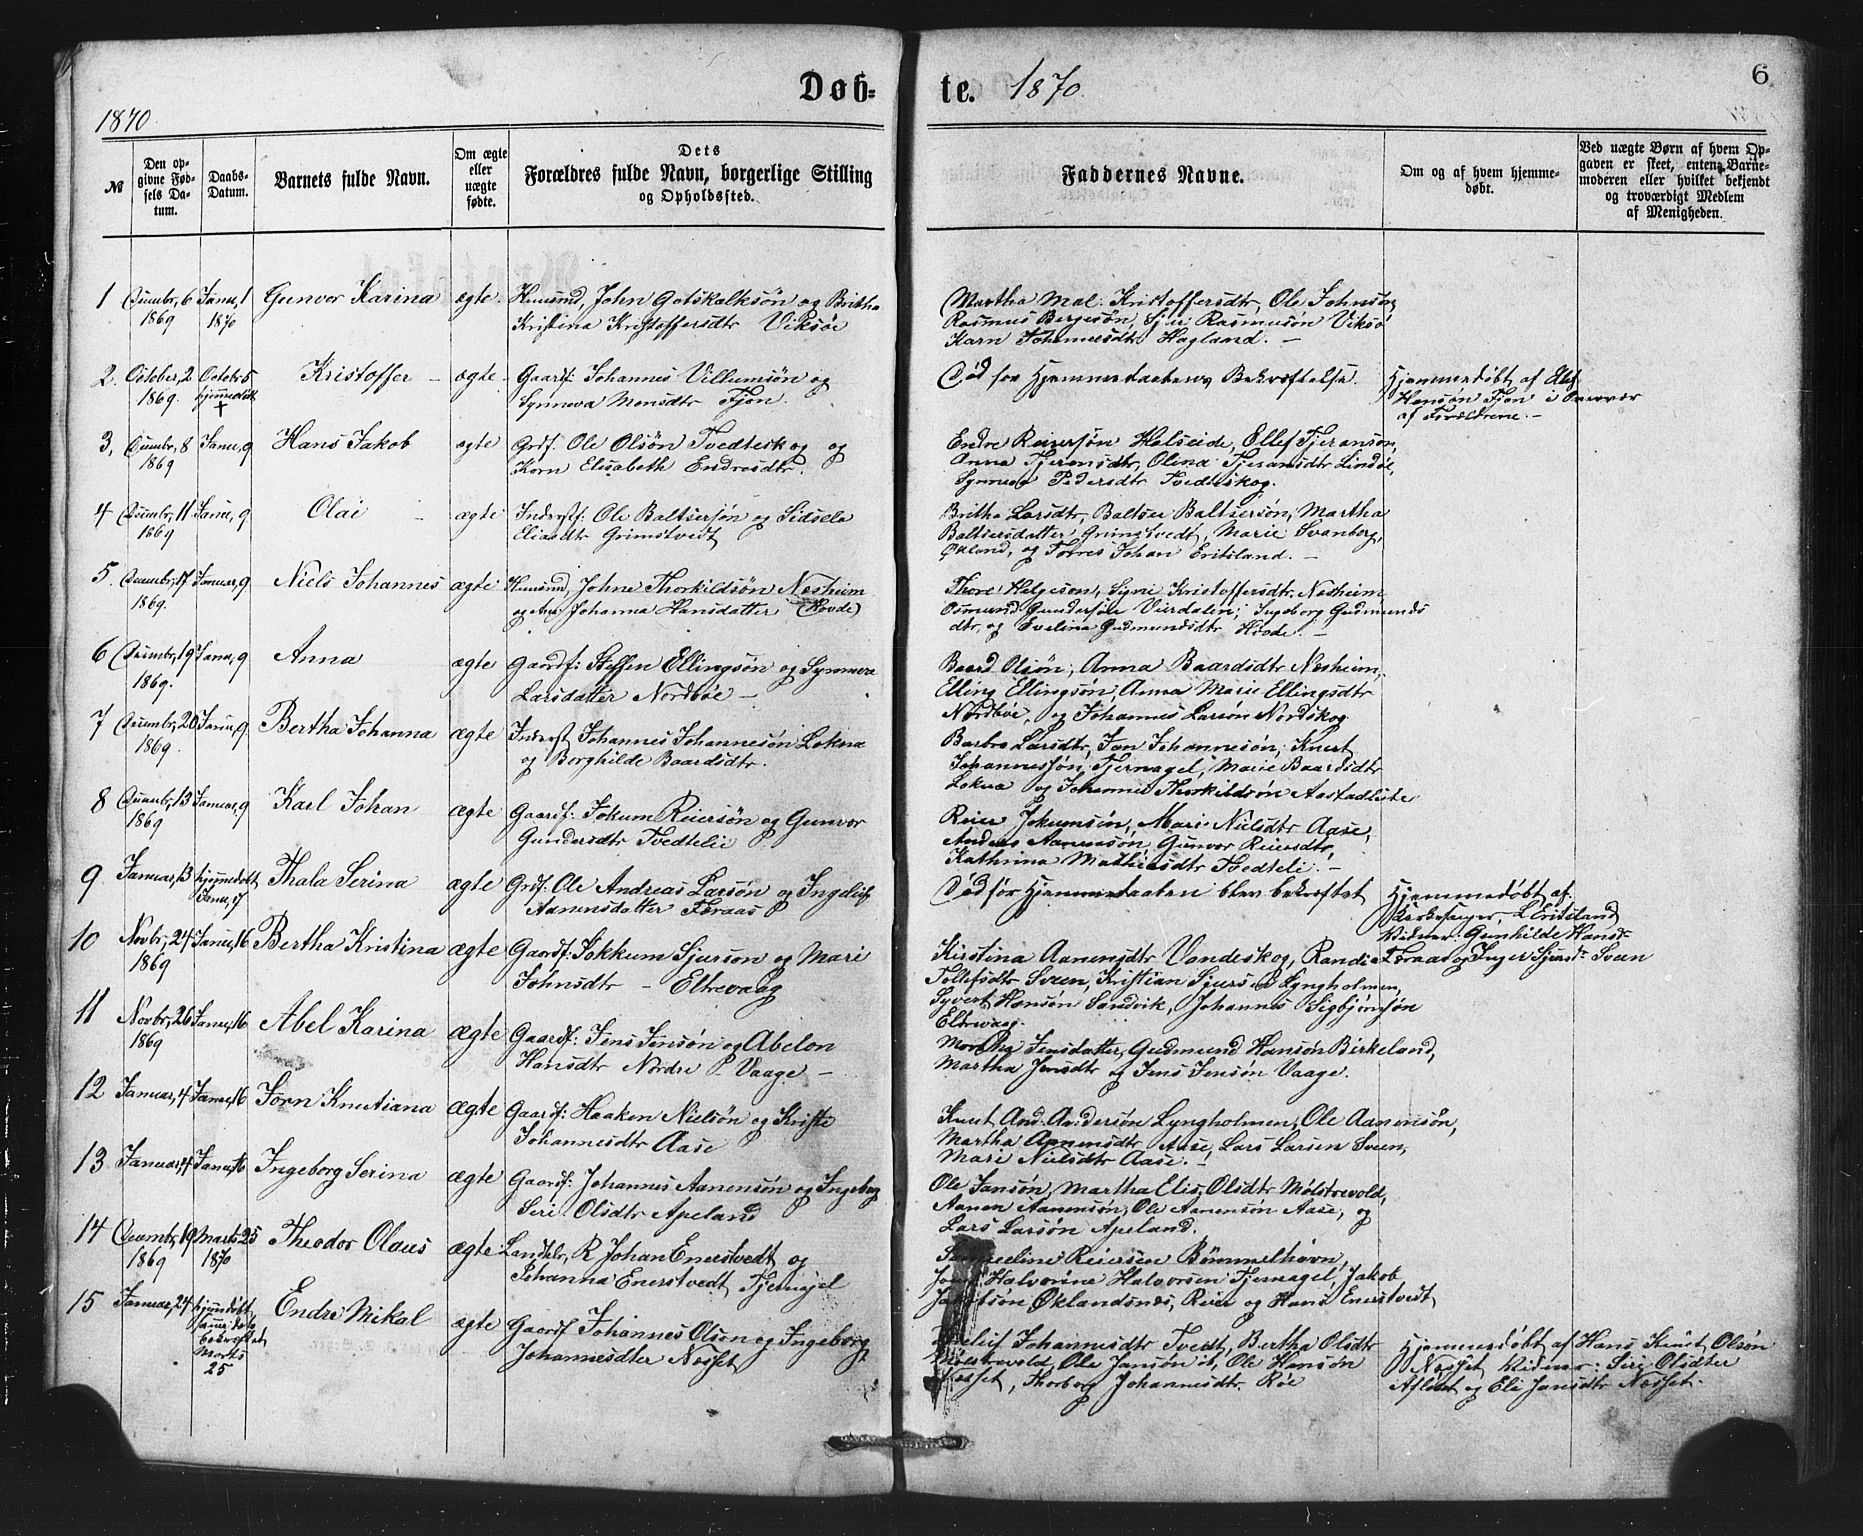 Døb=
te. 1870.
6
1870.
№
Den op-
givne Fød-
sels Da-
tum.
Daabs-
Datum.
Barnets fulde Navn.
Om ægte
eller
uægte
fødte.
Dets
Forældres fulde Navn, borgerlige Stilling
og Opholdssted.
Faddernes Navne.
Om og af hvem hjemme-
døbt.
Ved uægte Børn af hvem Op-
gaven er skeet, enten Barne-
moderen eller hvilket bekjendt
og troværdigt Medlem
af Menigheden.
1 6 1869 Janu, 1 1870 Gunvor Karina ægte Husmd, John Gotskalksøn og Britha
Kristina Kristoffersdtr Viksøe
Martha Mal: Kristoffersdtr, Ole Johnsøn,
Rasmus Bergesøn, Rasmusøn Viksø
Karn Johannesdtr Hagland. —
2. October, 2 1869. Octobr 5 hjemmedøbt † Kristoffer — ægte Gaardf: Johannes Villumsøn og
Synneva Monsdtr Fjon.
Død før Hjemmedaabens Bekræftelse.
Hjemmedøbt af
Hansøn Fjon i Nærvær
af Forældrene. —
3, 8 1869 Janu, 9 Hans Jakob ægte Grdf: Ole Olsøn Tvedteskog og
Korn Elisabeth Endresdtr.
Endre Reiersøn Halseide, Ellef Tjeransøn,
Anna Tjeransdtr, Olina Tjeransdtr Lindøe,
Synneva Pedersdtr Tvedteskog.
4 11 1869 Janu, 9 Olai — ægte Inderstf: Ole Baltsersøn og Sidsela
Eliasdtr Grimstvedt
Britha Larsdtr, Baltser Baltsersøn, Martha
Baltsersdatter Grimstvedt, Marie Svanberg,
Økland, og Torres Johan Eritsland. —
5. 17 1869. Januar, 9 Niels Johannes ægte Husmd, Johne Thorkildsøn Nesheim
og Johanna Hansdatter (Hovde)
Thore Helgeson, Kristoffersdtr. Nesheim
Gundersøn Vierdalen; Ingeborg Gudmunds
dtr, og Evelina Gudmundsdtr Hovde. —
6 19 1869. Janu, 9 Anna ægte Gaardf: Steffen Ellingsøn og Synneva
Larsdatter Nordbøe —
Baard Olsøn; Anna Baardsdtr Nesheim,
Elling Ellingsøn, Anna Marie Ellingsdtr
Nordbøe, og Johannes Larsøn Nordskog
7 20 1869. Janu, 9 Bertha Johanna ægte Inderst Johannes Johannesøn Lokna
og Borghilde Baardsdtr.
Barbro Larsdtr, Jan Johannesøn, Knut
Johannessøn, Tjernagel, Marie Baardsdtr
Lokna og Johannes Thorkildsøn
8 13 1869 Januar, 9 Karl Johan ægte Gaardf: Jokum Reiersøn og Gunvor
Gundersdtr Tvedtelie
Reier Jokumsøn, Mari Nielsdtr Aase,
Anders Aanensøn, Gunvor Reiersdtr,
Kathrina Mathiasdtr Tvedteli. —
9 Januar, 13 hjemmedøbt Janu, 17 Thala Serina ægte Grdf: Ole Andreas Larsøn og Ingeleif
Aanensdatter Foraas
Død før Hjemmedaaben blev bekræftet
Hjemmedøbt af
Kirkesanger, L Eritsland
Vidner: Gunhilde Hansd:
Foraas og Inger Sjursd: Sveen
10 Novbr, 24 1869 Janu, 16 Bertha Kristina ægte Gaardf: Jokkum Sjursøn og Mari
Johnsdtr — Eltrevaag
Kirstina Aanensdtr Vandeskog, Randi
Tollefsdtr Sveen, Kristian Sjursen Lyngholmen,
Syvert Hansøn Sandvik, Johannes Sigbjørnsøn
Eltrevaag.
11 Novbr, 26 1869 Janu, 16 Abel Karina ægte Gaardf: Jens Jensøn og Abelon
Hansdtr Nordre Vaage —
Martha Jensdatter, Gudmund Hansøn Birkeland,
Martha Jensdtr og Jens Jensøn Vaage.
12 Januar, 4 Janu, 16 Jorn Knutiana ægte Gaardf: Haaken Nielsøn og Kriste
Johannesdtr Aase
Knut And. Andersøn Lyngholmen, Ole Aanensøn,
Martha Aanensdtr Aase, Lars Larsen Sveen,
Mari Nielsdtr Aase. —
13 Januar, 4 Janu, 16 Ingeborg Serina ægte Gaardf: Johannes Aanensøn og Ingebor
Seri Olsdtr Apeland
Ole Jansøn, Martha Elis. Olsdtr Mølstrevold,
Aanen Aanensøn, Ole Aanensøn Aase, og
Lars Larsøn Apeland.
14 19 1869 Marts 25 1870 Theodor Olaus ægte Landhlr, R. Johan Enerstvedt og
Johanna Enerstvedt Tjernagel
Reiersen Bømmelhavn,
Halvorine Halvorsen Tjernagel, Jakob
Jakobsøn Øklandsnes, Reier og Hans Enerstvedt
15 Januar, 24 hjemdøbt samme dato bekræftet Marts 25 Endre Mikal ægte Gaardf Johannes Olsøn og Ingeborg
Johannesdter Næsset
Johannesdtr Tvedt, Bertha Olsdtr
Mølstrevold, Ole Jansøn it, Ole Hansøn
Næsset, Thorborg Johannesdtr. Røe
Hjemmedøbt af Hans Knut Olsøn
Næsset, Vidner: Siri Olsdter
og Eli Jansdtr Næsset.